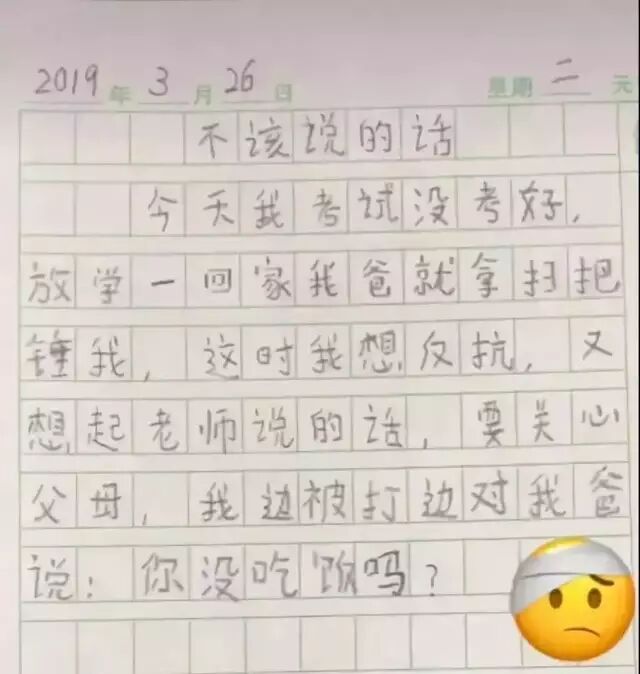 2019年3月26日 星期二 元
不该说的话
今天我考试没考好，
放学一回家我爸就拿扫把
锤我，这时我想反抗，又
想起老师说的话，要关心
父母，我边被打边对我爸
说：你没吃饭吗？